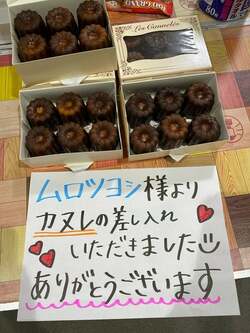 Les Cannelés
ムロツヨシ様より
カヌレの差し入れ
いただきました
ありがとうございます